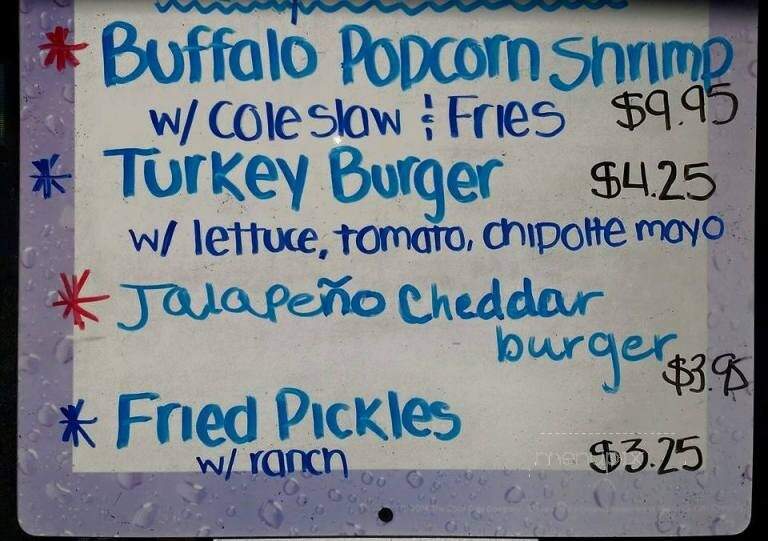 * Buffalo Popcorn Shrimp
w/ Coleslaw & Fries $9.95
* Turkey Burger $4.25
w/ lettuce, tomato, chipotle mayo
* Jalapeño Cheddar
burger $3.95
* Fried Pickles
w/ ranch $3.25